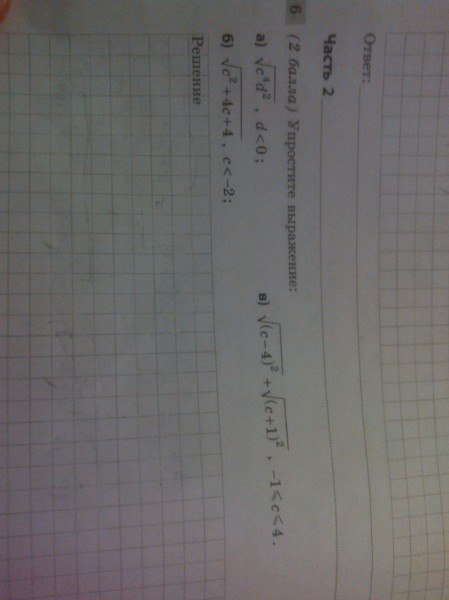 Ответ:
Часть 2
6 (2 балла) Упростите выражение:
а) √c⁴d², d<0;
в) √(c−4)² + √(c+1)², −1⩽c⩽4.
б) √c²+4c+4, c<−2;
Решение